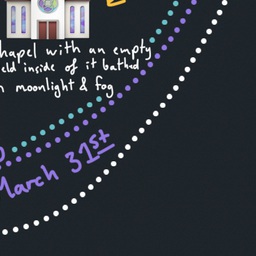 chapel with an empty
eld inside of it bathed
moonlight & fog
March 31st